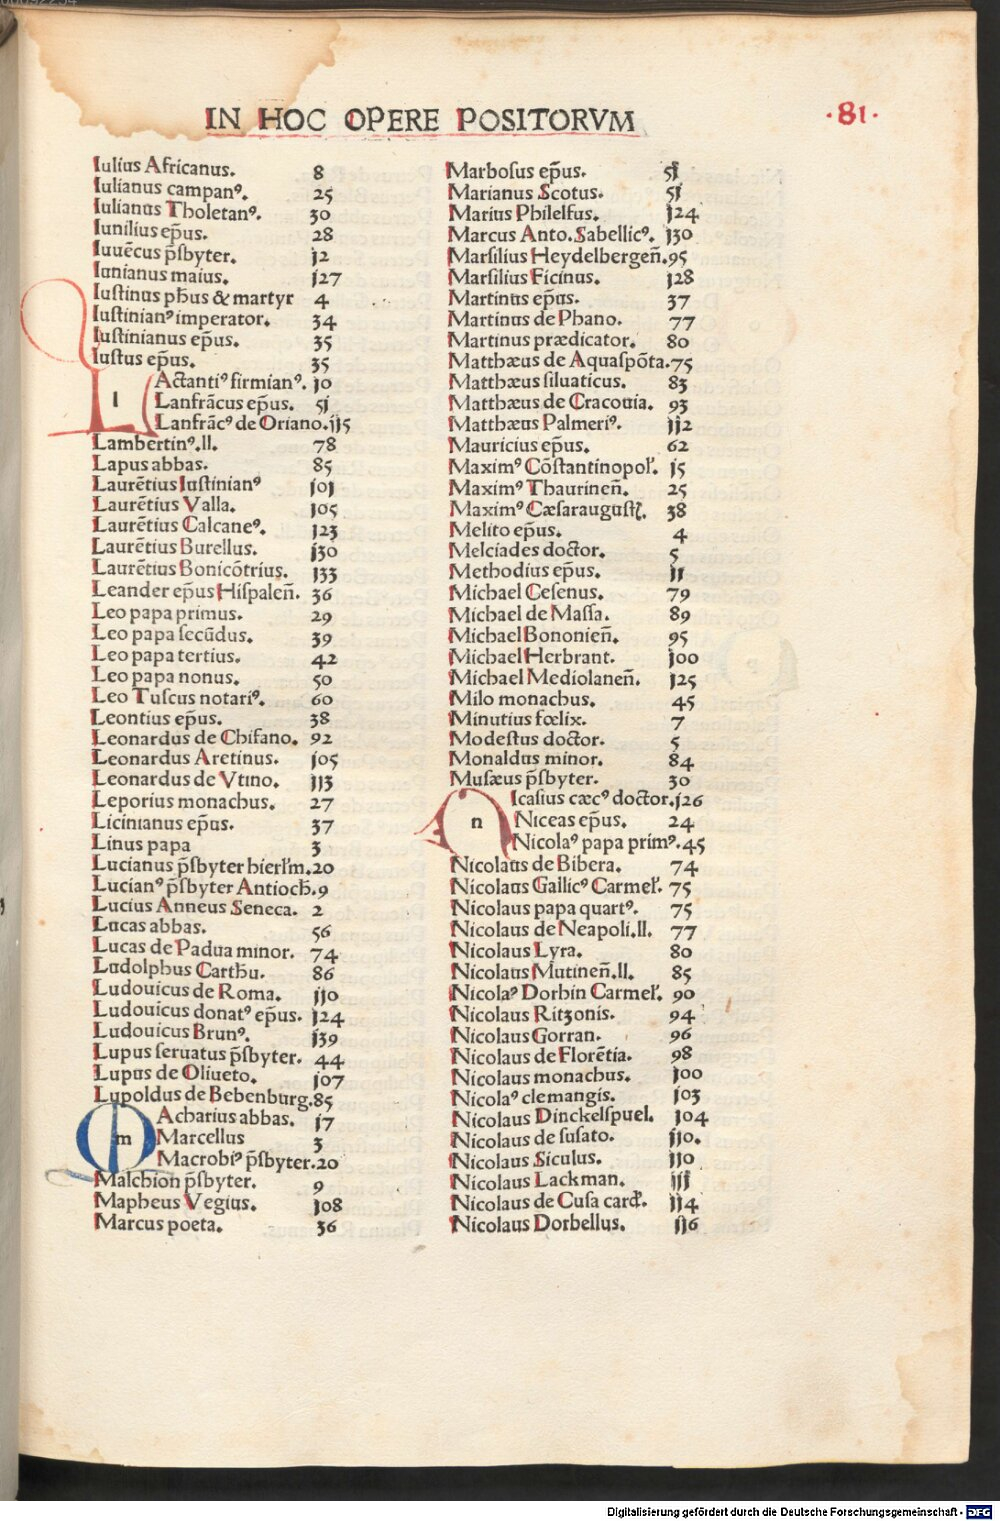 IN HOC OPERE POSITORVM
·81·
Iulius Africanus. 8
Iulianus campanꝰ. 25
Iulianus Tholetanꝰ. 30
Iunilius ep̃us. 28
Iuuẽcus p̃sbyter. j2
Iunianus maius. j27
Iustinus ph̃us & martyr 4
Iustinianꝰ imperator. 34
Iustinianus ep̃us. 35
Iustus ep̃us. 35
l
Actantiꝰ firmianꝰ. j0
Lanfrãcus ep̃us. 5j
Lanfrãcꝰ de Oriano. jj5
Lambertinꝰ.ll. 78
Lapus abbas. 85
Laurẽtius Iustinianꝰ j0j
Laurẽtius Valla. j05
Laurẽtius Calcaneꝰ. j23
Laurẽtius Burellus. j30
Laurẽtius Bonicõtrius. j33
Leander ep̃us Hispaleñ. 36
Leo papa primus. 29
Leo papa secũdus. 39
Leo papa tertius. 42
Leo papa nonus. 50
Leo Tuscus notariꝰ. 60
Leontius ep̃us. 38
Leonardus de Chifano. 92
Leonardus Aretinus. j05
Leonardus de Vtino. jj3
Leporius monachus. 27
Licinianus ep̃us. 37
Linus papa 3
Lucianus p̃sbyter hierl'm. 20
Lucianꝰ p̃sbyter Antioch̃. 9
Lucius Anneus Seneca. 2
Lucas abbas. 56
Lucas de Padua minor. 74
Ludolphus Carth̃u. 86
Ludouicus de Roma. jj0
Ludouicus donatꝰ ep̃us. j24
Ludouicus Brunꝰ. j39
Lupus seruatus p̃sbyter. 44
Lupus de Oliueto. j07
Lupoldus de Bebenburg. 85
m
Acharius abbas. j7
Marcellus 3
Macrobiꝰ p̃sbyter. 20
Malchion p̃sbyter. 9
Mapheus Vegius. j08
Marcus poeta. 36
Marbosus ep̃us. 5j
Marianus Scotus. 5j
Marius Philelfus. j24
Marcus Anto. Sabellicꝰ. j30
Marsilius Heydelbergeñ. 95
Marsilius Ficinus. j28
Martinus ep̃us. 37
Martinus de Phano. 77
Martinus prædicator. 80
Matthæus de Aquaspõta. 75
Matthæus siluaticus. 83
Matthæus de Cracouia. 93
Matthæus Palmeriꝰ. jj2
Mauricius ep̃us. 62
Maximꝰ Cõstantinopol'. j5
Maximꝰ Thaurineñ. 25
Maximꝰ Cæsaraugustꝭ. 38
Melito ep̃us. 4
Melciades doctor. 5
Methodius ep̃us. jj
Michael Cesenus. 79
Michael de Massa. 89
Michael Bononieñ. 95
Michael Herbrant. j00
Michael Mediolaneñ. j25
Milo monachus. 45
Minutius fœlix. 7
Modestus doctor. 5
Monaldus minor. 84
Musæus p̃sbyter. 30
n
Icasius cæcꝰ doctor. j26
Niceas ep̃us. 24
Nicolaꝰ papa primꝰ. 45
Nicolaus de Bibera. 74
Nicolaus Gallicꝰ Carmel'. 75
Nicolaus papa quartꝰ. 75
Nicolaus de Neapoli.ll. 77
Nicolaus Lyra. 80
Nicolaus Mutineñ.ll. 85
Nicolaꝰ Dorbin Carmel'. 90
Nicolaus Ritzonis. 94
Nicolaus Gorran. 96
Nicolaus de Florẽtia. 98
Nicolaus monachus. j00
Nicolaꝰ clemangis. j03
Nicolaus Dinckelspuel. j04
Nicolaus de susato. jj0.
Nicolaus Siculus. jj0
Nicolaus Lackman. jjj
Nicolaus de Cusa card̃. jj4
Nicolaus Dorbellus. jj6
Digitalisierung gefördert durch die Deutsche Forschungsgemeinschaft - DFG